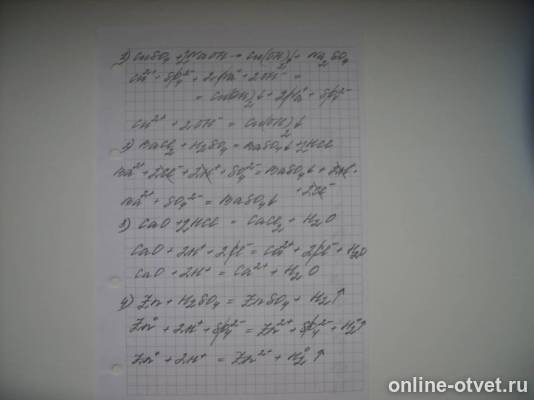 1) CuSO₄ + 2NaOH → Cu(OH)₂↓ + Na₂SO₄
Cu²⁺ + SO₄²⁻ + 2Na⁺ + 2OH⁻ =
= Cu(OH)₂↓ + 2Na⁺ + SO₄²⁻
Cu²⁺ + 2OH⁻ = Cu(OH)₂↓
2) BaCl₂ + H₂SO₄ = BaSO₄↓ + 2HCl
Ba²⁺ + 2Cl⁻ + 2H⁺ + SO₄²⁻ = BaSO₄↓ + 2H⁺
+ 2Cl⁻
Ba²⁺ + SO₄²⁻ = BaSO₄↓
3) CaO + 2HCl = CaCl₂ + H₂O
CaO + 2H⁺ + 2Cl⁻ = Ca²⁺ + 2Cl⁻ + H₂O
CaO + 2H⁺ = Ca²⁺ + H₂O
4) Zn + H₂SO₄ = ZnSO₄ + H₂↑
Zn⁰ + 2H⁺ + SO₄²⁻ = Zn²⁺ + SO₄²⁻ + H₂⁰↑
Zn⁰ + 2H⁺ = Zn²⁺ + H₂⁰↑
online-otvet.ru